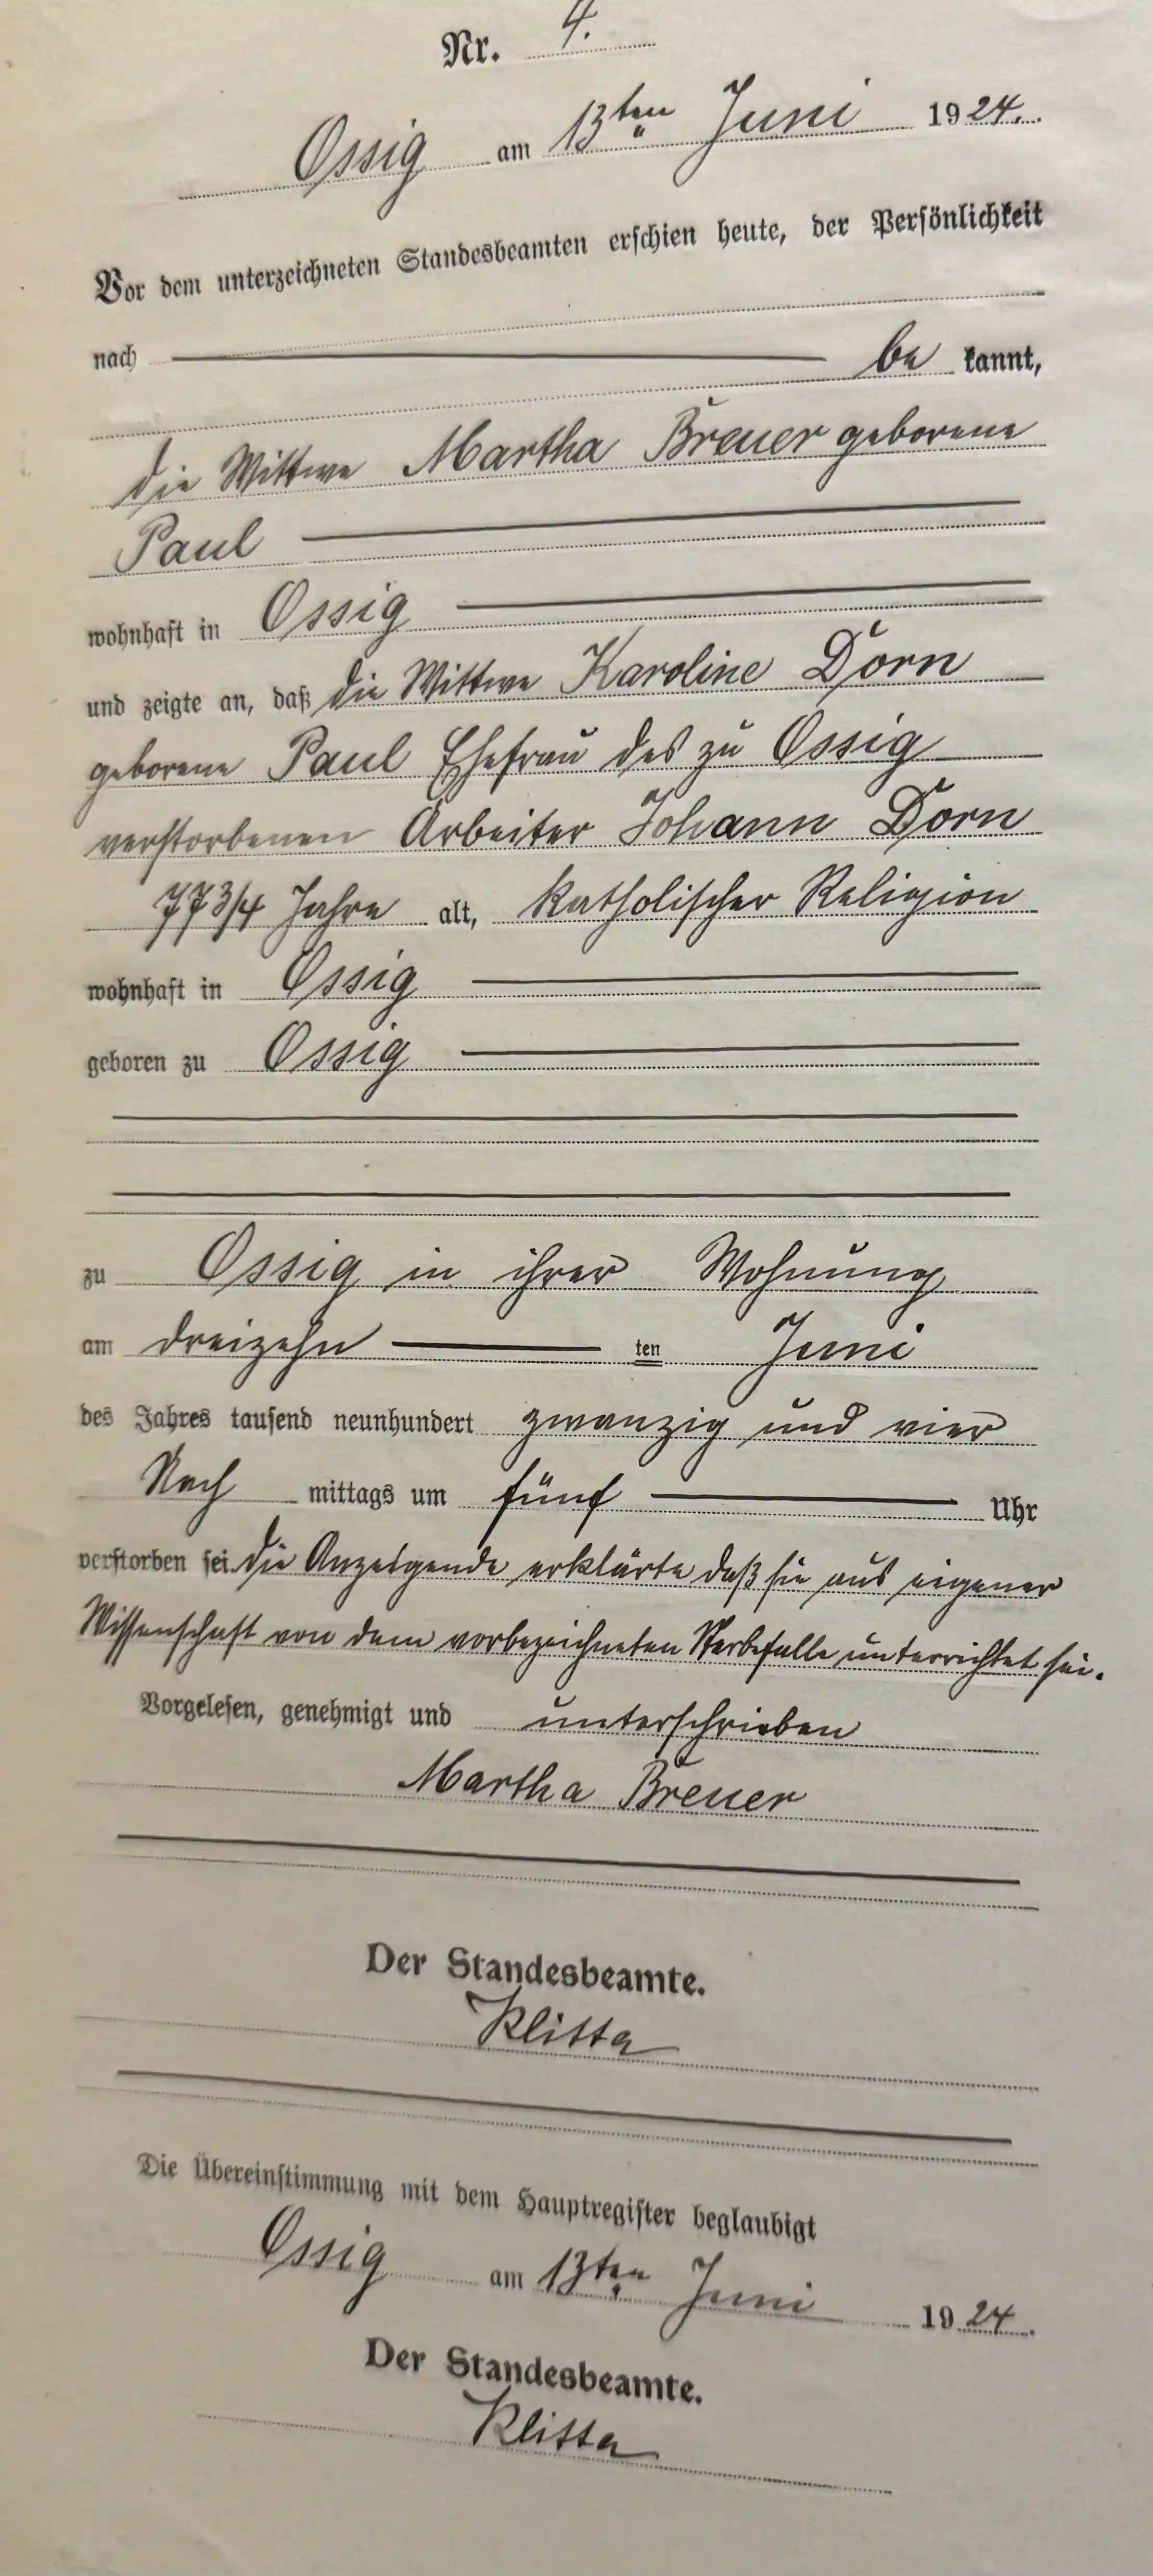 Nr. 4.
Ossig am 13ten Juni 1924.
Vor dem unterzeichneten Standesbeamten erschien heute, der Persönlichkeit
nach be kannt,
die Wittwe Martha Breuer geborene
Paul
wohnhaft in Ossig
und zeigte an, daß die Wittwe Karoline Dorn
geborene Paul Ehefrau des zu Ossig
verstorbenen Arbeiter Johann Dorn
77 3/4 Jahre alt, katholischer Religion
wohnhaft in Ossig
geboren zu Ossig
zu Ossig in ihrer Wohnung
am dreizehn ten Juni
des Jahres tausend neunhundert zwanzig und vier
Nach mittags um fünf Uhr
verstorben sei. Die Anzeigende erklärte daß sie aus eigener
Wissenschaft von dem vorbezeichneten Sterbefalle unterrichtet sei.
Vorgelesen, genehmigt und unterschrieben
Martha Breuer
Der Standesbeamte.
Klitta
Die Übereinstimmung mit dem Hauptregister beglaubigt
Ossig am 13ten Juni 1924.
Der Standesbeamte.
Klitta